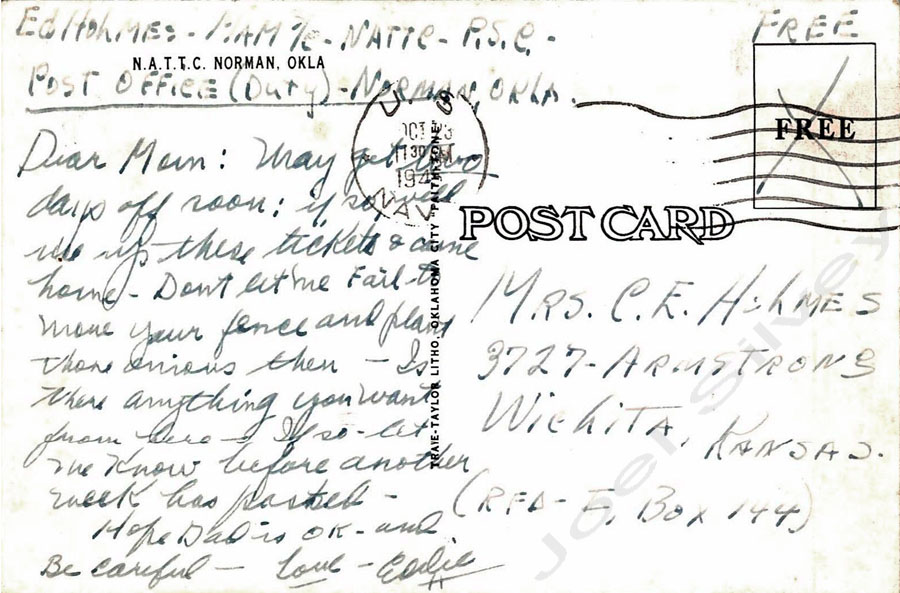 Ed Holmes - MAM 3/c - NATTC - P.S.C. -
N.A.T.T.C. NORMAN, OKLA
Post Office (Duty) - Norman, Okla.
FREE
FREE
U
OCT
11 30 PM
194
NAV
POST CARD
TRAIE-TAYLOR LITHO, OKLAHOMA CITY
Dear Mom: May get two
days off soon; if so, will
use up these tickets & come
home - Dont let me Fail to
move your fence and plant
those onions then - Is
there anything you want
from here - If so - let
me know before another
week has passed -
Hope Dad is OK - and
Be careful - Love - Eddie
Mrs. C. E. Holmes
3727 - Armstrong
Wichita, Kansas.
(RFD - E, Box 144)
Joel Silvey